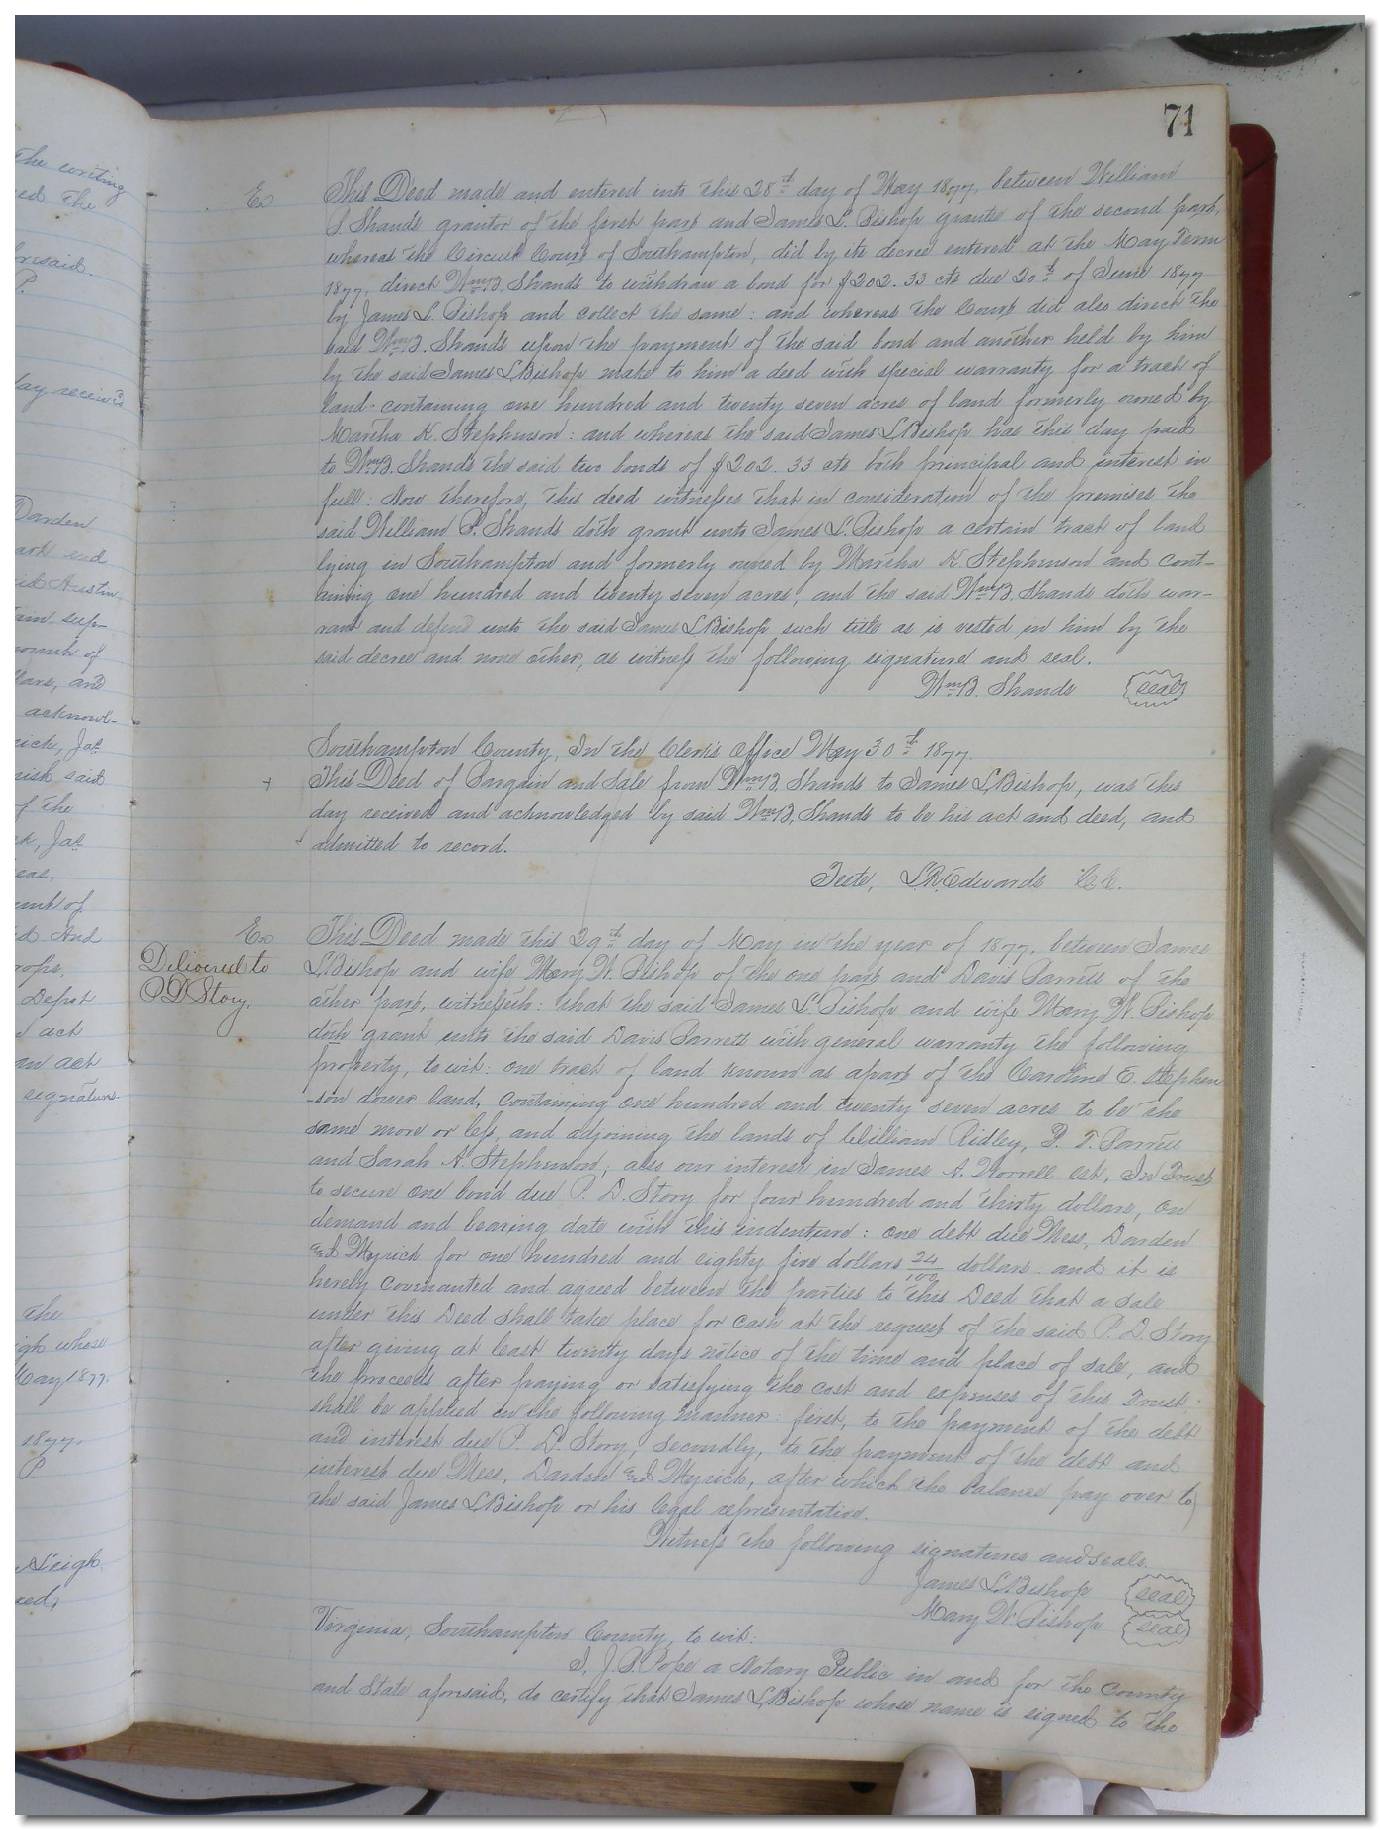 71
Ex
This Deed made and entered into this 28th day of May 1877, between William
B. Shands grantor of the first part and James L. Bishop grantee of the second part,
whereas the Circuit Court of Southampton, did by its decree entered at the May Term
1877, direct Wm B. Shands to withdraw a bond for $202.33 cts due 20th of June 1877
by James L. Bishop and collect the same: and whereas the Court did also direct the
said Wm B. Shands upon the payment of the said bond and another held by him
by the said James L Bishop make to him a deed with special warranty for a tract of
land containing one hundred and twenty seven acres of land formerly owned by
Martha K. Stephenson: and whereas the said James L Bishop has this day paid
to Wm B. Shands the said two bonds of $202.33 cts both principal and interest in
full: Now therefore, this deed witnesses that in consideration of the premises the
said William B. Shands doth grant unto James L. Bishop a certain tract of land
lying in Southampton and formerly owned by Martha K. Stephenson and cont-
aining one hundred and twenty seven acres, and the said Wm B. Shands doth war-
rant and defend unto the said James L Bishop such title as is vested in him by the
said decree and none other, as witness the following signature and seal.
Wm B. Shands seal
Southampton County, In the Clerk's Office May 30th 1877.
This Deed of Bargain and Sale from Wm B. Shands to James L Bishop, was this
day received and acknowledged by said Wm B. Shands to be his act and deed, and
admitted to record.
Teste, L.R. Edwards C.C.
Ex
Delivered to
P D Story.
This Deed made this 29th day of May in the year of 1877, between James
L Bishop and wife Mary W. Bishop of the one part and Davis Barrett of the
other part, witnesseth: that the said James L. Bishop and wife Mary W. Bishop
doth grant unto the said Davis Barrett with general warranty the following
property, to wit: one tract of land known as apart of the Caroline E. Stephen
-son dower land, containing one hundred and twenty seven acres to be the
same more or less, and adjoining the lands of William Ridley, Barrett
and Sarah A. Stephenson, also our interest in James A. Worrell est, In Trust
to secure one bond due P. D. Story for four hundred and thirty dollars, on
demand and bearing date with this indenture: one debt due Mess, Darden
and Myrick for one hundred and eighty five dollars 24/100 dollars and it is
hereby covenanted and agreed between the parties to this Deed that a sale
under this Deed shall take place for cash at the request of the said P. D. Story
after giving at least twenty days notice of the time and place of sale, and
the proceeds after paying or satisfying the cost and expenses of this Trust
shall be applied in the following manner: first, to the payment of the debt
and interest due P. D. Story, secondly, to the payment of the debt and
interest due Mess, Darden and Myrick, after which the balance pay over to
the said James L Bishop or his legal representative.
Witness the following signatures and seals.
James L. Bishop seal
Mary W. Bishop seal
Virginia, Southampton County, to wit:
I, J. B. Pope a Notary Public in and for the County
and State aforesaid, do certify that James L Bishop whose name is signed to the